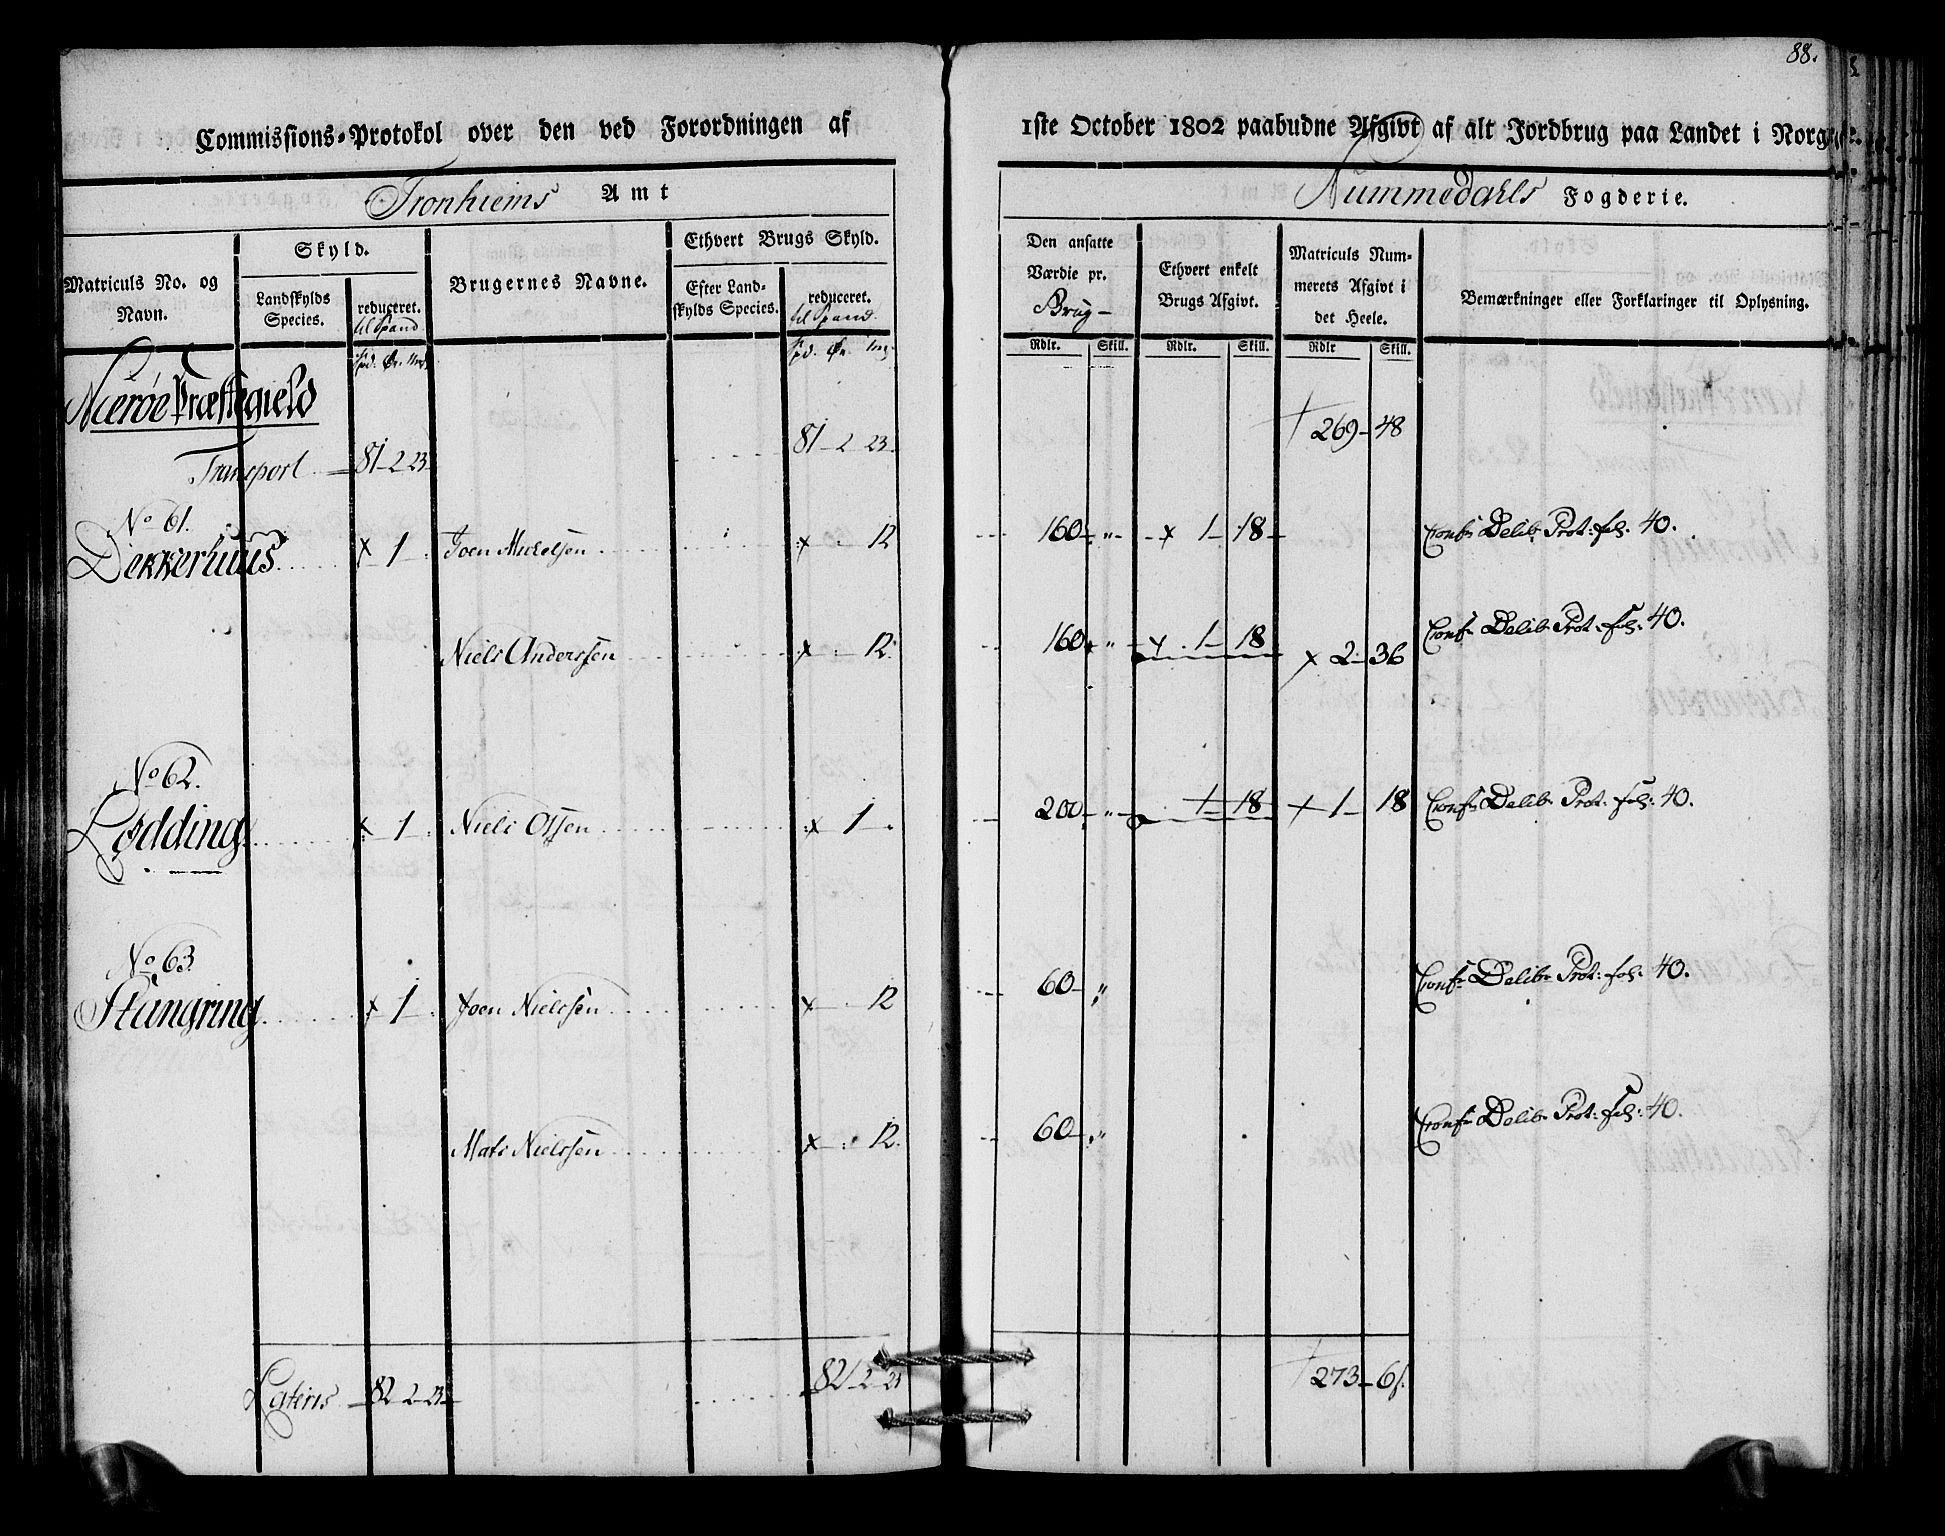 88.
Commissions-Protokol over den ved Forordningen af 1ste October 1802 paabudne Afgivt af alt Jordbrug paa Landet i Norg
Tronhiems Amt Nummedahls Fogderie.
Matriculs No. og Navn.
Skyld.
Landskylds Species.
reduceret. til Spand
Brugernes Navne.
Ethvert Brugs Skyld.
Efter Landskylds Species.
reduceret. til Spand.
Den ansatte Værdie pr. Brug
Ethvert enkelt Brugs Afgivt.
Matriculs Nummerets Afgivt i det Heele.
Bemærkninger eller Forklaringer til Oplysning.
Spd. Ør. Mrk. Spd. Ør. Mrk. Rdlr. Skill. Rdlr. Skill. Rdlr Skill.
Nærøe Præstegield
Transport 81-2 23 81-2 23. 269-48
No 61.
Dekkerhuus 1 Joen Mickelsen 12 160 " 1-18 Conf. Delib. Prot: fol: 40.
Niels Anderssen 12 160 " 1-18 2-36 Conf. Delib. Prot: fol: 40.
No 62.
Lødding 1 Niels Olssen 1 200 " 1-18 1-18 Conf. Delib. Prot: fol: 40.
No 63.
Stungring 1 Joen Nielssen 12 60 " Conf. Delib. Prot: fol: 40.
Mats Nielssen 12. 60 " Conf. Delib. Prot: fol: 40.
Lateris 82-2-23 82-2-23 273-6